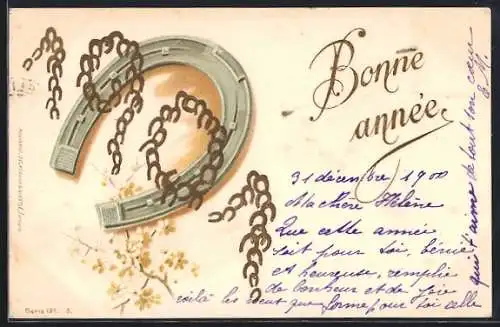 Bonne
année
31 décembre 1900
Ma chère Hélène
Que cette année
soit pour toi, bénie
et heureuse, remplie
de bonheur et de joie
voilà les vœux que forme pour toi celle
qui t'aime de tout son cœur
E. M.
Serie 131.